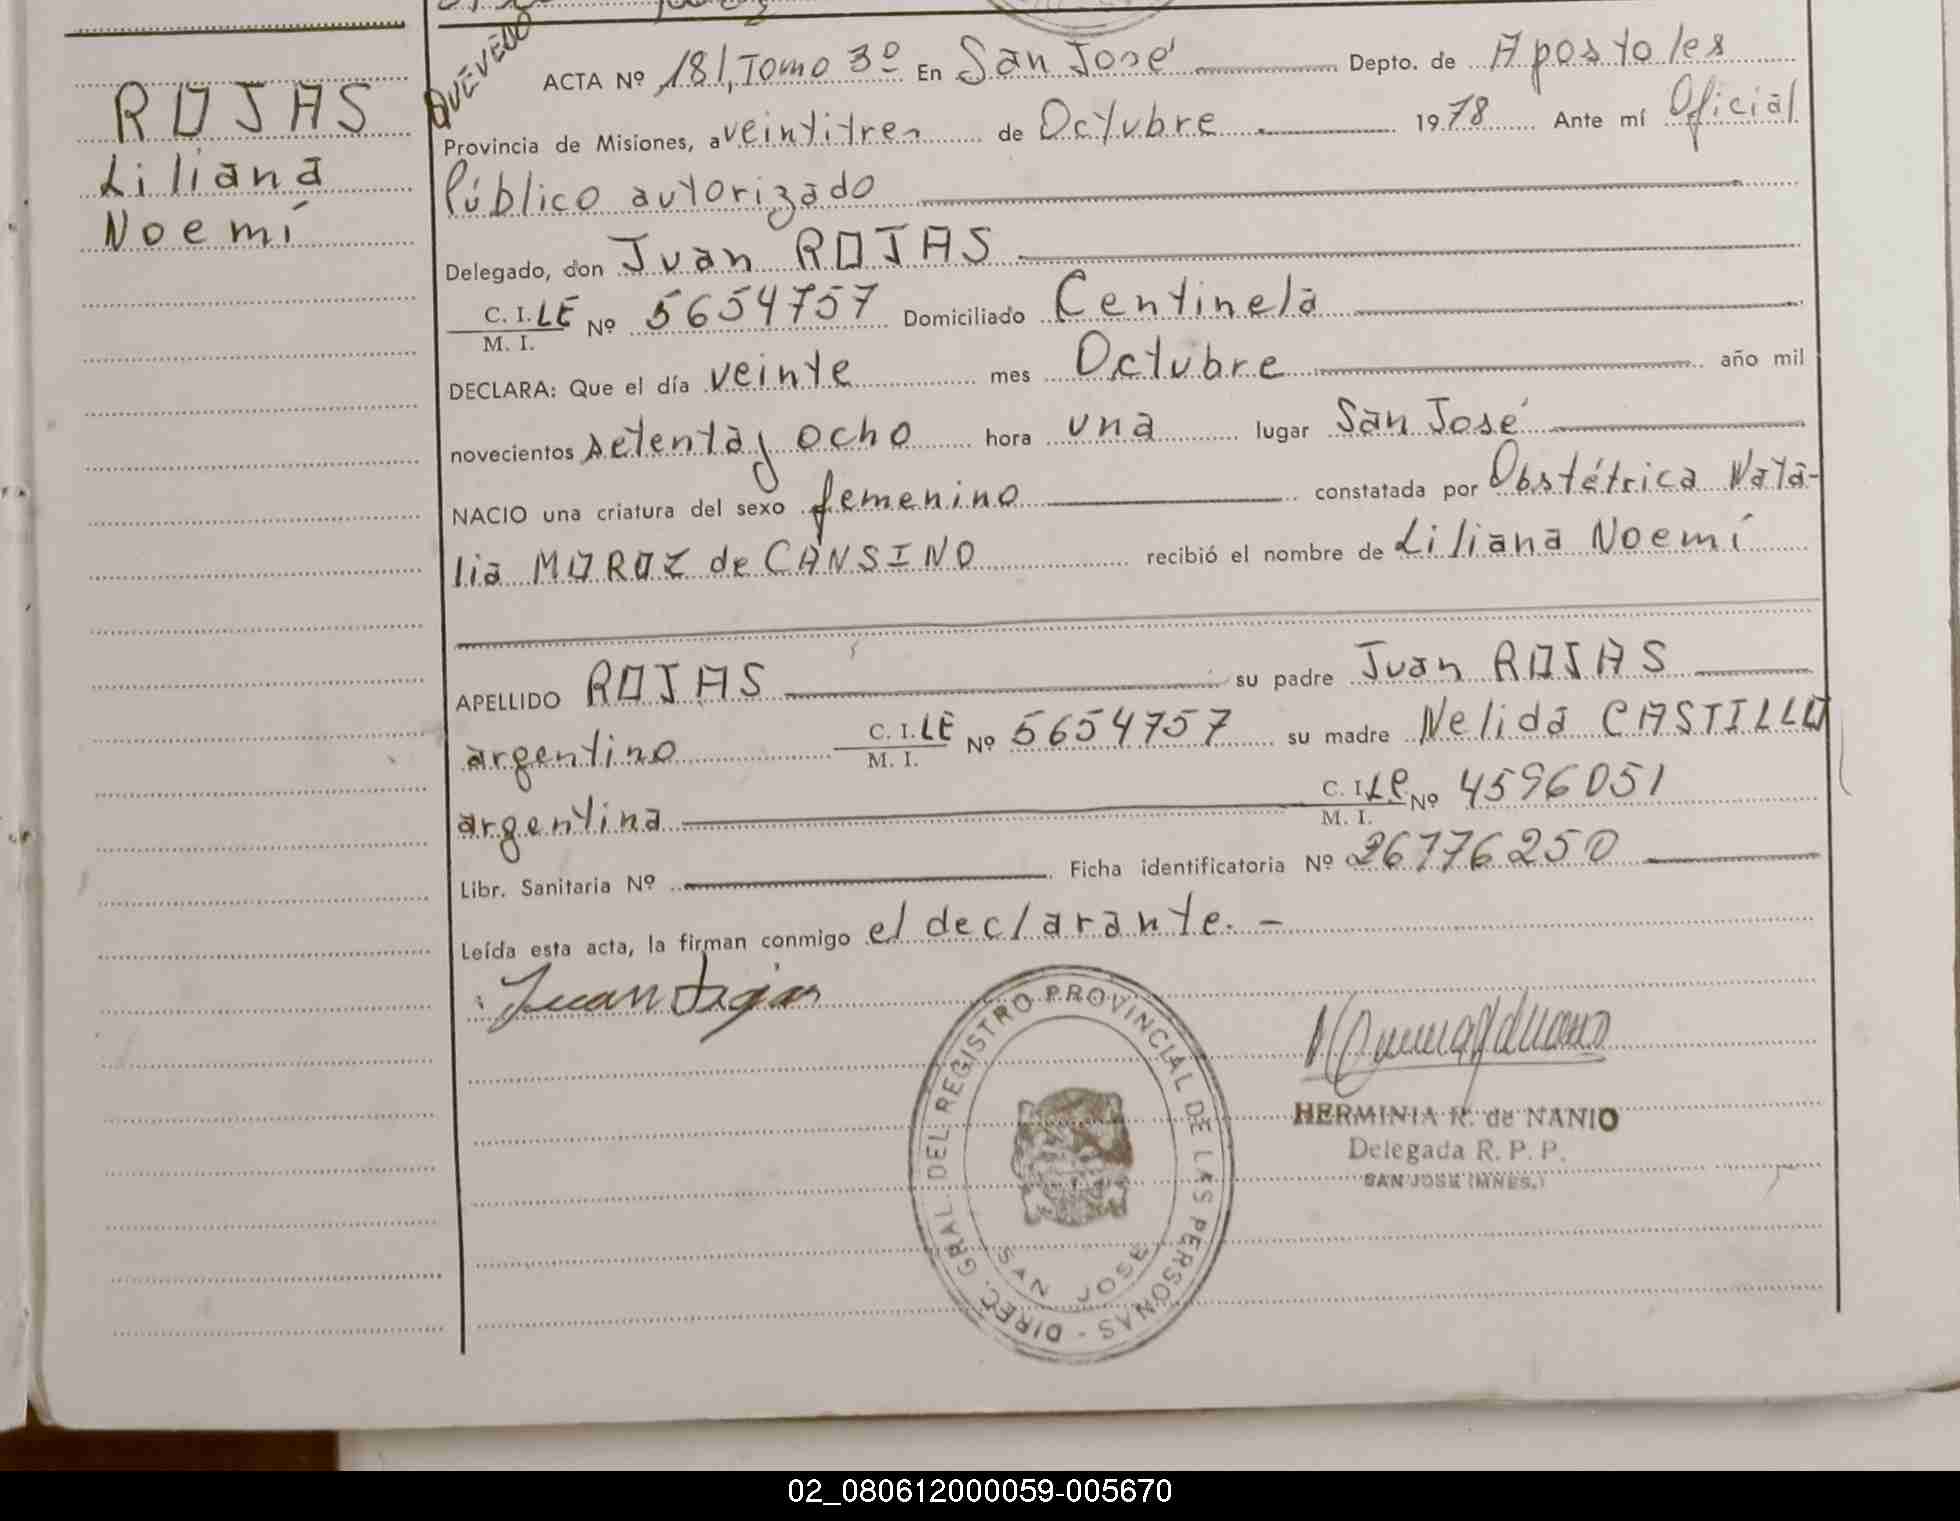 QUÉVEDO
ROJAS
Liliana
Noemí
ACTA Nº 181, Tomo 3º En San José Depto. de Apostoles
Provincia de Misiones, a veintitres de Octubre 1978 Ante mí Oficial
Público autorizado
Delegado, don Juan ROJAS
C. I. LE Nº 5654757 Domiciliado Centinela
M. I.
DECLARA: Que el día veinte mes Octubre año mil
novecientos setenta y ocho hora una lugar San José
NACIO una criatura del sexo femenino constatada por Obstétrica Nata-
lia MOROZ de CANSINO recibió el nombre de Liliana Noemí
APELLIDO ROJAS su padre Juan ROJAS
argentino C. I. LE Nº 5654757 su madre Nelida CASTILLO
M. I.
argentina C. I. LC Nº 4596051
M. I.
Libr. Sanitaria Nº Ficha identificatoria Nº 26776250
Leída esta acta, la firman conmigo el declarante. -
Juan Rojas
DIREC. GRAL DEL REGISTRO PROVINCIAL DE LAS PERSONAS -
SAN JOSE
HERMINIA R. de NANIO
Delegada R. P. P.
SAN JOSE (MNES.)
02_080612000059-005670